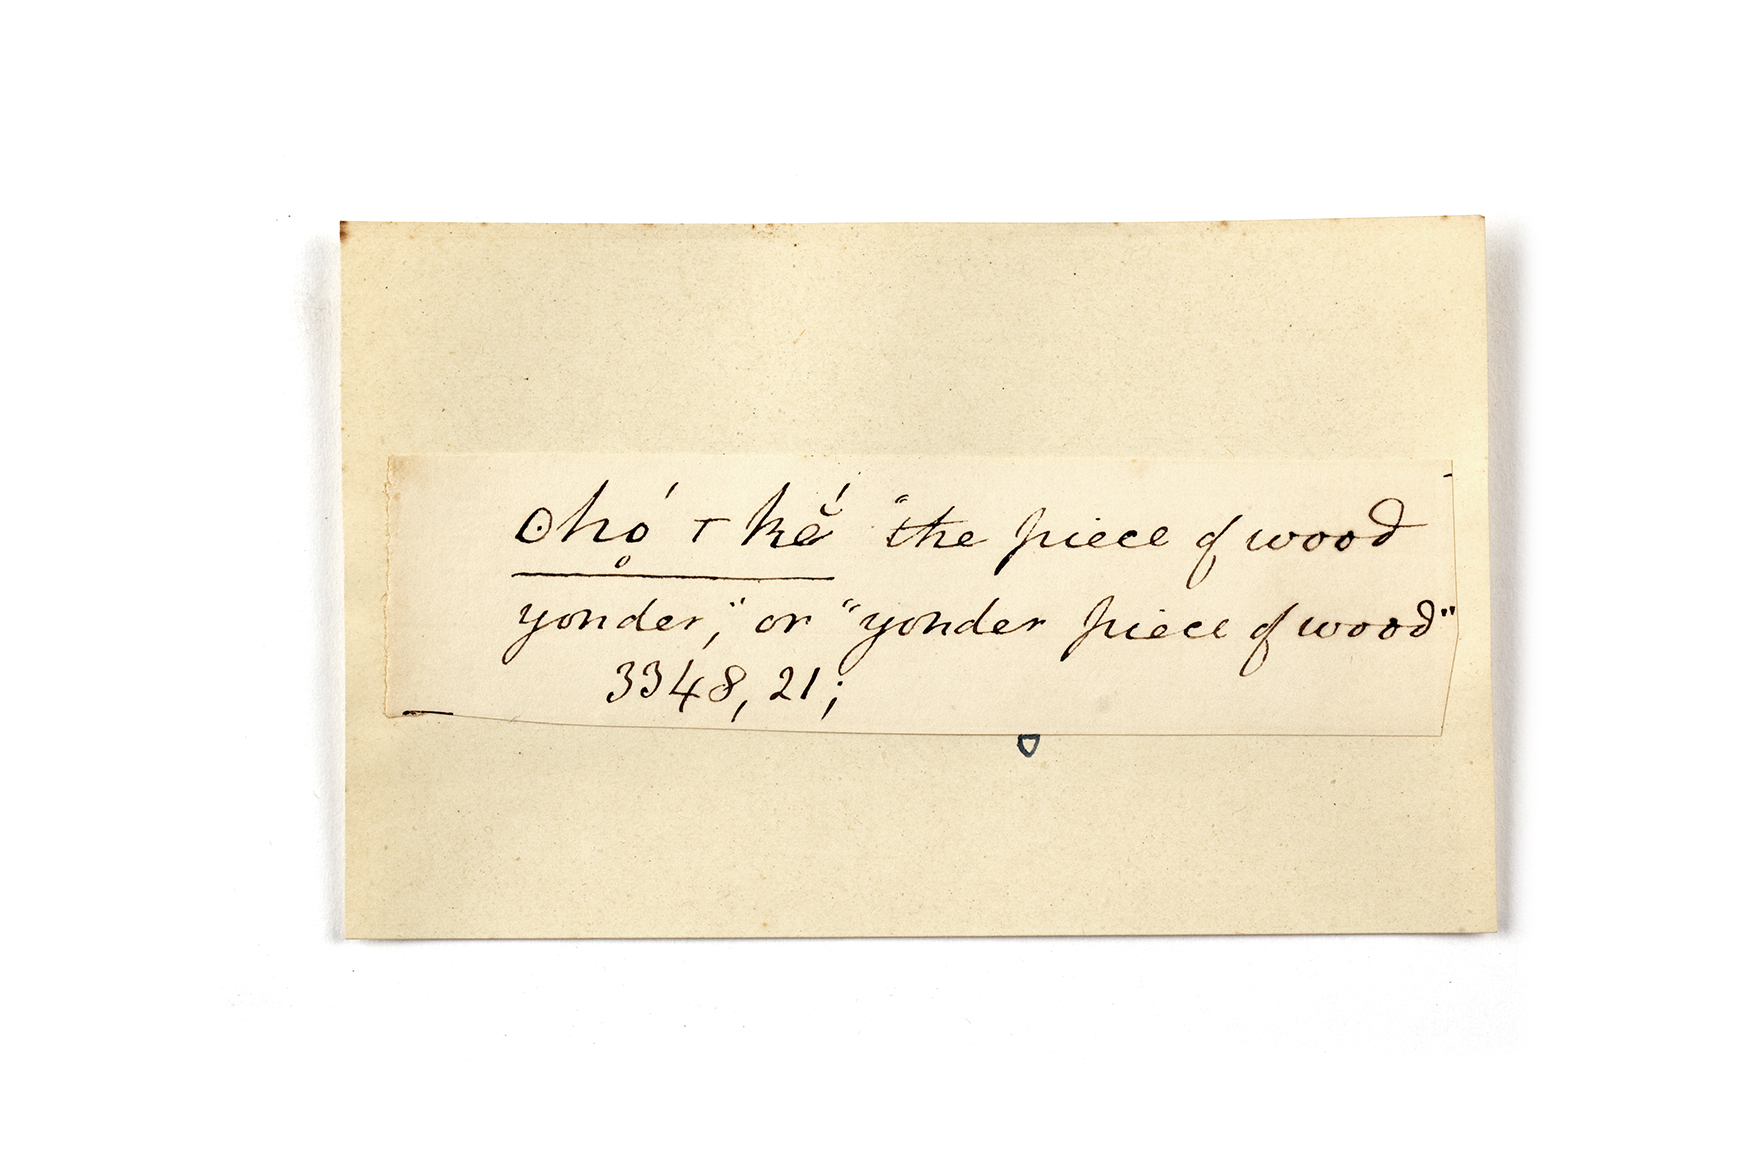 ʘhọ́ ⊤ kĕ́ "the piece of wood
yonder," or "yonder piece of wood"
3348, 21;